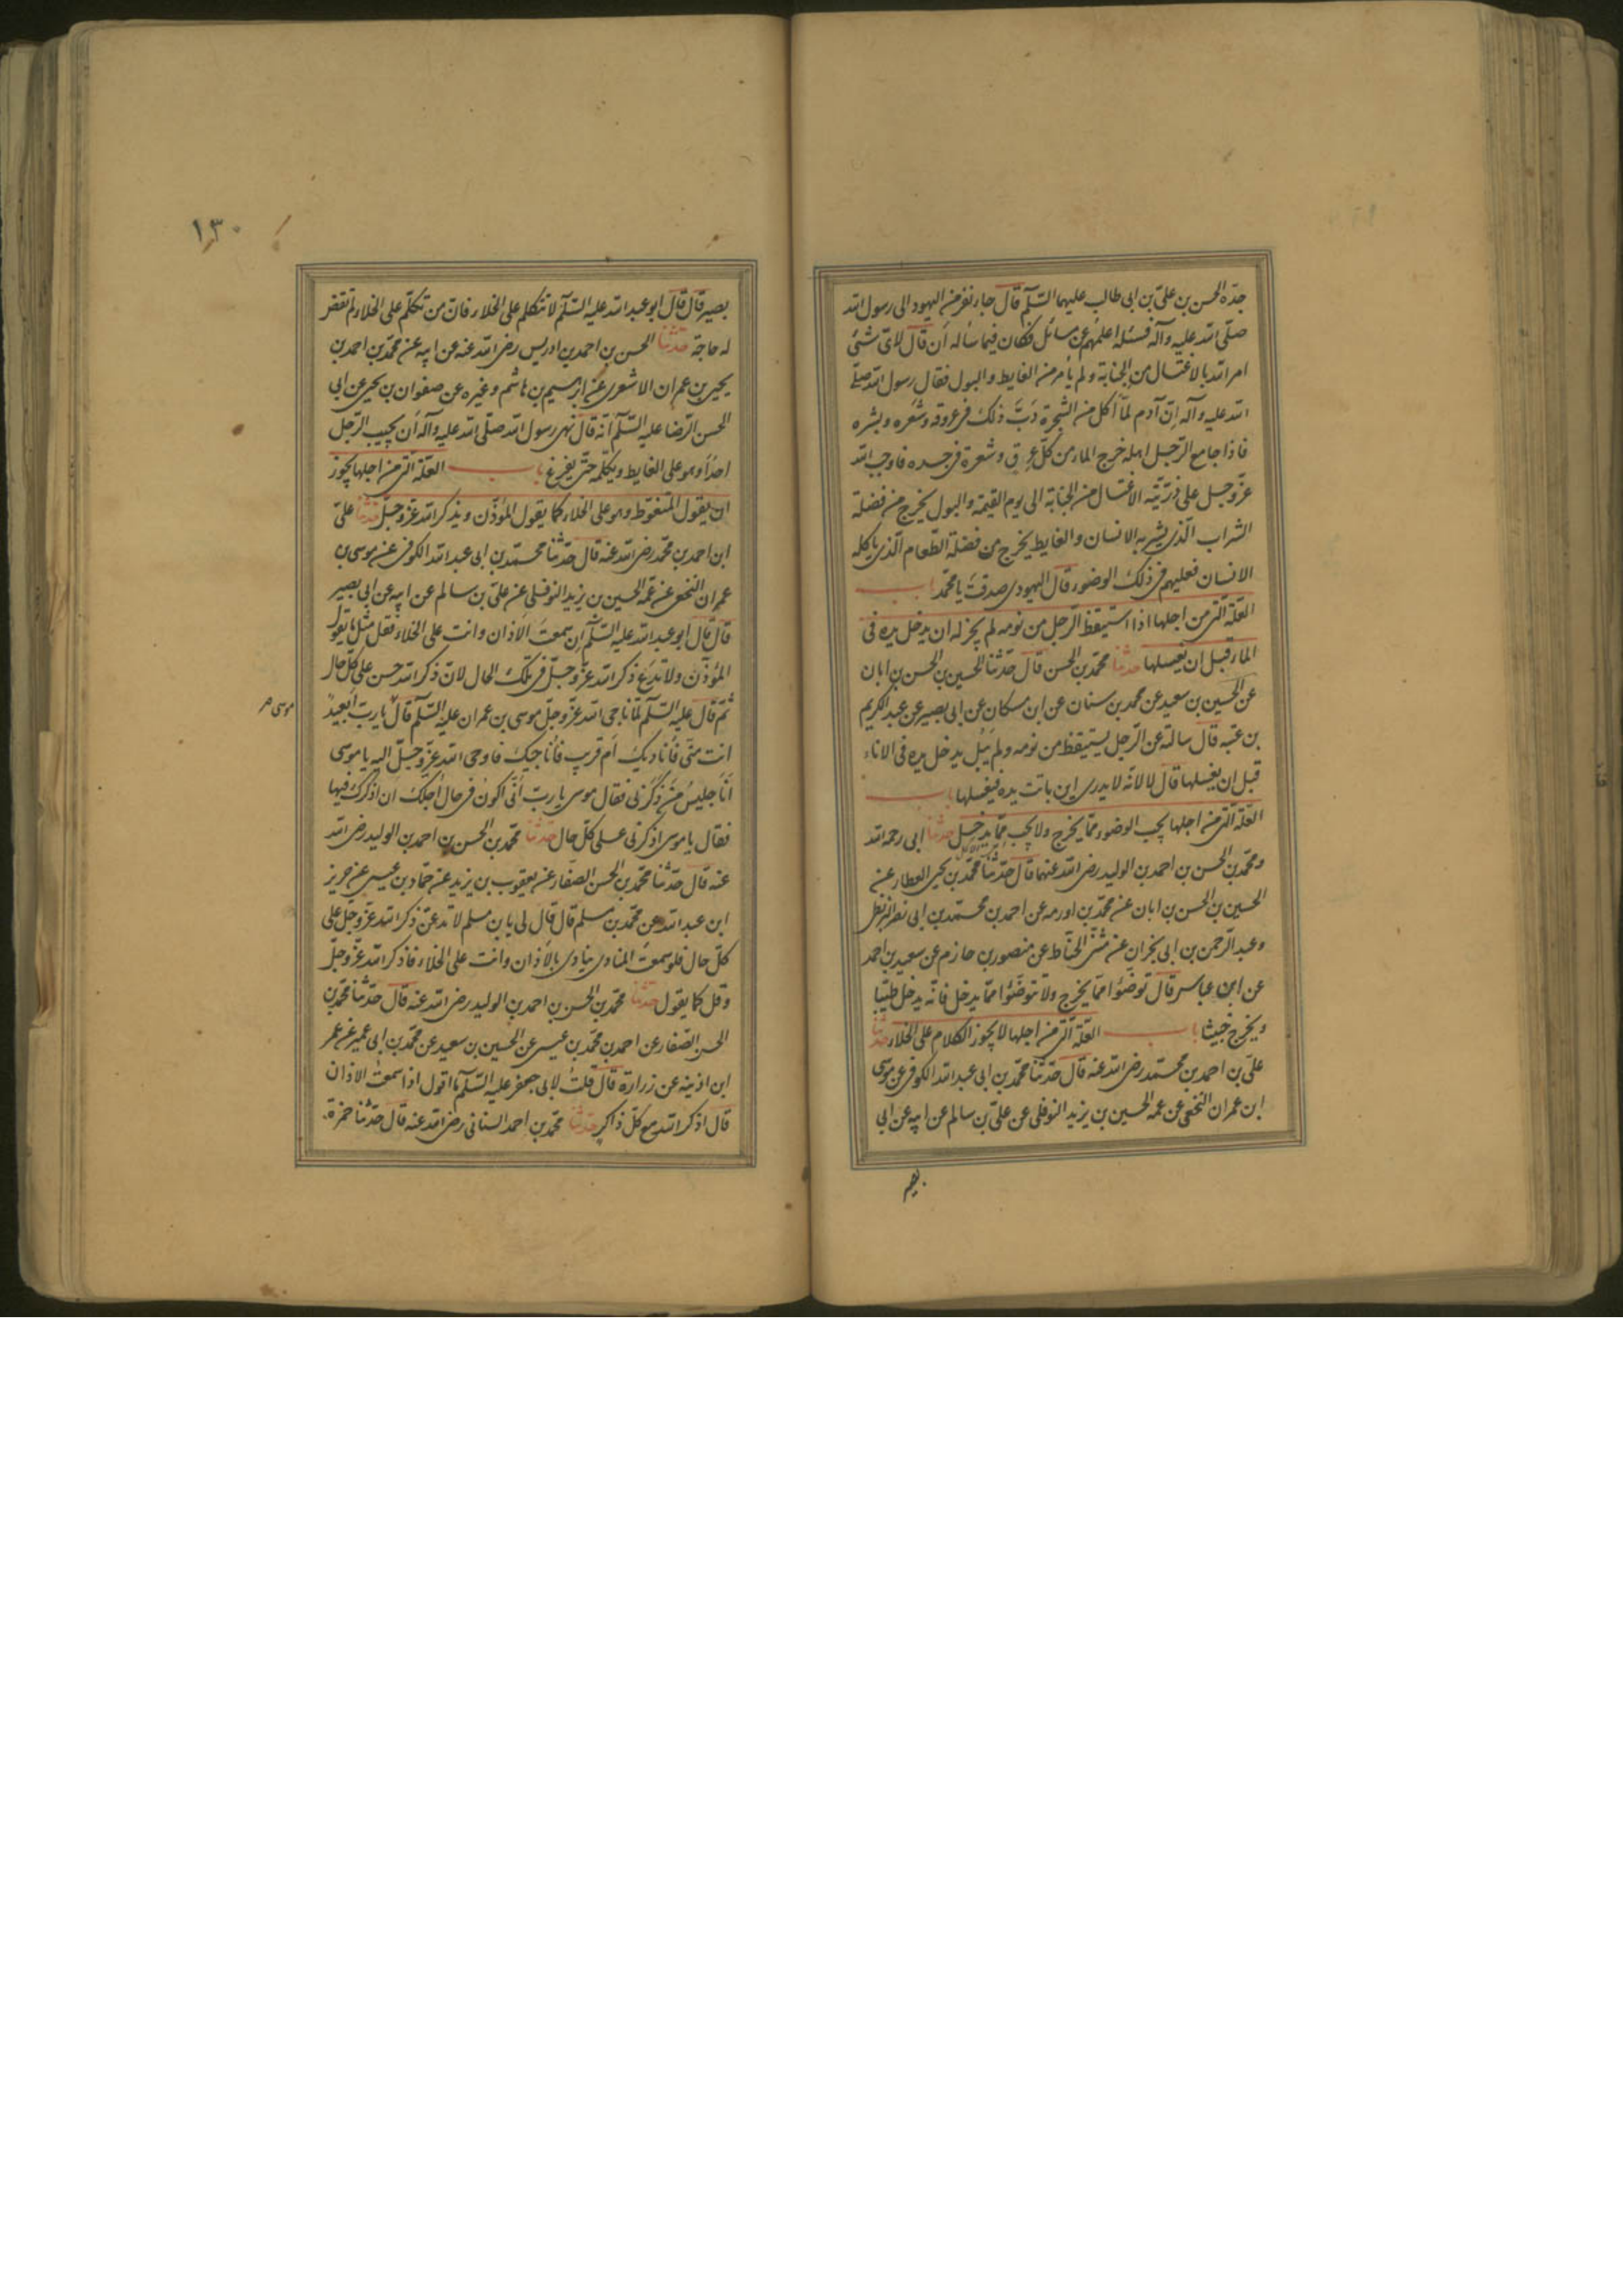 جده الحسن بن علي بن ابي طالب عليهما السلم قال جاء نفر من اليهود الى رسول الله
صلى الله عليه وآله فسئله اعلمهم عن مسائل فكان فيما ساله ان قال لاى شئ
امر الله بالاغتسال من الجنابة ولم يأمر من الغايط والبول فقال رسول الله صلى
الله عليه وآله ان آدم لما اكل من الشجرة دبّ ذلك فى عروقه وشعره وبشره
فاذا جامع الرجل اهله خرج الماء من كل عرق وشعرة فى جسده فاوجب الله
عز وجل على ذريته الاغتسال من الجنابة الى يوم القيمة والبول يخرج من فضلة
الشراب الذى يشربه الانسان والغايط يخرج من فضلة الطعام الذى ياكله
الانسان فعليهم فى ذلك الوضوء قال اليهودى صدقت يا محمد باب
العلة التى من اجلها اذا استيقظ الرجل من نومه لم يجز له ان يدخل يده فى
الماء قبل ان يغسلها حدثنا محمد بن الحسن قال حدثنا الحسين بن الحسن بن ابان
عن الحسين بن سعيد عن محمد بن سنان عن ابن مسكان عن ابى بصير عن عبد الكريم
بن عتبه قال سالته عن الرجل يستيقظ من نومه ولم يبل يدخل يده فى الاناء
قبل ان يغسلها قال لا لانه لا يدرى اين باتت يده فيغسلها باب
العلة التى من اجلها يجب الوضوء مما يخرج ولا يجب مما يدخل حدثنا ابى رحمه الله
ومحمد بن الحسن بن احمد بن الوليد رضى الله عنهما قال حدثنا محمد بن يحيى العطار عن
الحسين بن الحسن بن ابان عن محمد بن اورمه عن احمد بن محمد بن ابى نصر البزنطى
وعبد الرحمن بن ابى نجران عن مثنى الحناط عن منصور بن حازم عن سعيد بن احمد
عن ابن عباس قال توضئوا مما يخرج ولا توضئوا مما يدخل فانه يدخل طيبا
ويخرج خبيثا باب العلة التى من اجلها لا يجوز الكلام على الخلاء حدثنا
على بن احمد بن محمد رضى الله عنه قال حدثنا محمد بن ابى عبد الله الكوفى عن موسى
ابن عمران النخعى عن عمه الحسين بن يزيد النوفلى عن على بن سالم عن ابيه عن ابى
بصير
١٣٠
بصير قال قال ابو عبد الله عليه السلم لا تتكلم على الخلاء فان من تكلم على الخلاء لم تقض
له حاجة حدثنا الحسن بن احمد بن ادريس رضى الله عنه عن ابيه عن محمد بن احمد بن
يحيى بن عمران الاشعرى عن ابرهيم بن هاشم وغيره عن صفوان بن يحيى عن ابى
الحسن الرضا عليه السلم انه قال نهى رسول الله صلى الله عليه وآله ان يجيب الرجل
احدا وهو على الغايط ويكلمه حتى يفرغ باب العلة التى من اجلها يجوز
ان يقول المتغوط وهو على الخلاء كما يقول المؤذن ويذكر الله عز وجل حدثنا على
ابن احمد بن محمد رضى الله عنه قال حدثنا محمد بن ابى عبد الله الكوفى عن موسى بن
عمران النخعى عن عمه الحسين بن يزيد النوفلى عن على بن سالم عن ابيه عن ابى بصير
قال قال ابو عبد الله عليه السلم ان سمعت الاذان وانت على الخلاء فقل مثل ما يقول
المؤذن ولا تدع ذكر الله عز وجل فى تلك الحال لان ذكر الله حسن على كل حال
ثم قال عليه السلم لما ناجى الله عز وجل موسى بن عمران عليه السلم قال يا رب ابعيد
موسى
انت منى فاناديك ام قريب فاناجيك فاوحى الله عز وجل اليه يا موسى
انا جليس من ذكرنى فقال موسى يا رب انى اكون فى حال اجلك ان اذكرك فيها
فقال يا موسى اذكرنى على كل حال حدثنا محمد بن الحسن بن احمد بن الوليد رضى الله
عنه قال حدثنا محمد بن الحسن الصفار عن يعقوب بن يزيد عن حماد بن عيسى عن حريز
ابن عبد الله عن محمد بن مسلم قال قال لى يا بن مسلم لا تدعن ذكر الله عز وجل على
كل حال فلو سمعت المنادى ينادى بالاذان وانت على الخلاء فاذكر الله عز وجل
وقل كما يقول حدثنا محمد بن الحسن بن احمد بن الوليد رضى الله عنه قال حدثنا محمد بن
الحسن الصفار عن احمد بن محمد بن عيسى عن الحسين بن سعيد عن محمد بن ابى عمير عن عمر
ابن اذينه عن زرارة قال قلت لابى جعفر عليه السلم ما اقول اذا سمعت الاذان
قال اذكر الله مع كل ذاكر حدثنا محمد بن احمد السنانى رضى الله عنه قال حدثنا حمزة